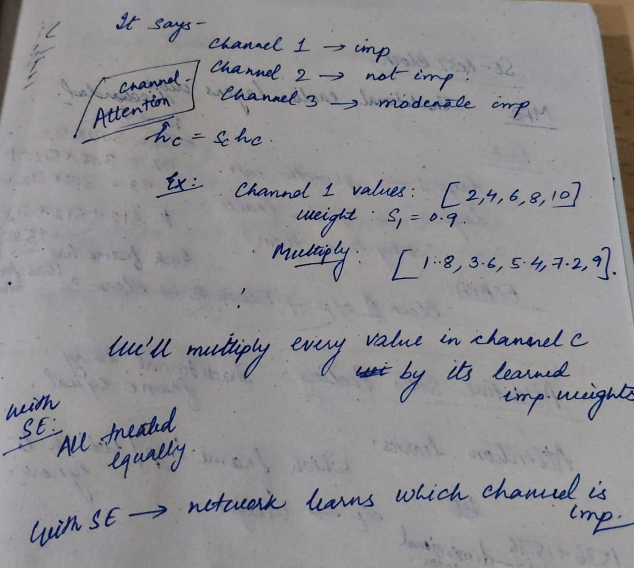 It says-
channel 1 → imp
Channel 2 → not imp.
Channel 3 → moderate imp
channel-
Attention
ĥc = Sc hc.
Ex: Channel 1 values: [2,4,6,8,10]
weight: S₁ = 0.9.
Multiply: [1.8, 3.6, 5.4, 7.2, 9].
We'll multiply every value in channel C
by its learned
imp. weights
with
SE:
All treated
equally.
with SE → network learns which channel is
imp.